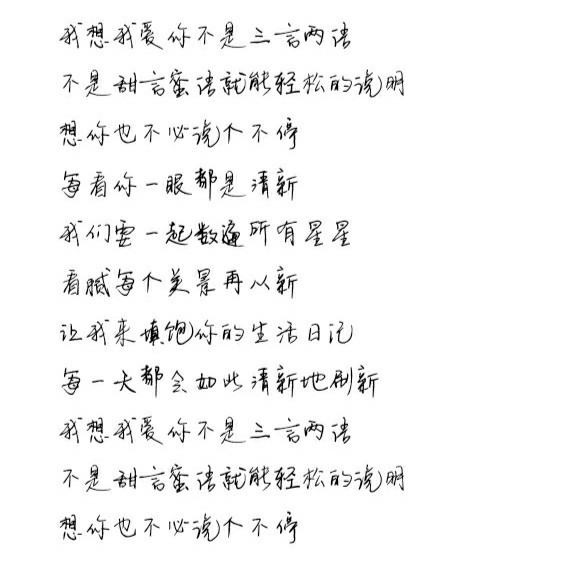 我想我爱你不是三言两语
不是甜言蜜语就能轻松的说明
想你也不必说个不停
每看你一眼都是清新
我们要一起数遍所有星星
看腻每个美景再从新
让我来填饱你的生活日记
每一天都会如此清新地刷新
我想我爱你不是三言两语
不是甜言蜜语就能轻松的说明
想你也不必说个不停